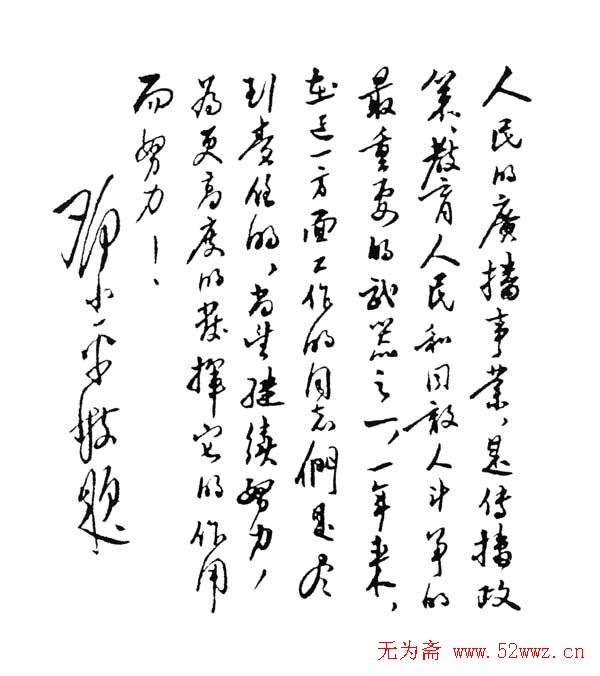 人民的廣播事業，是传播政
策、教育人民和同敌人斗争的
最重要的武器之一，一年来，
在这一方面工作的同志們是尽
到责任的，尚望继續努力，
为更高度的发揮它的作用
而努力！
邓小平敬题
无为斋 www.52wwz.cn